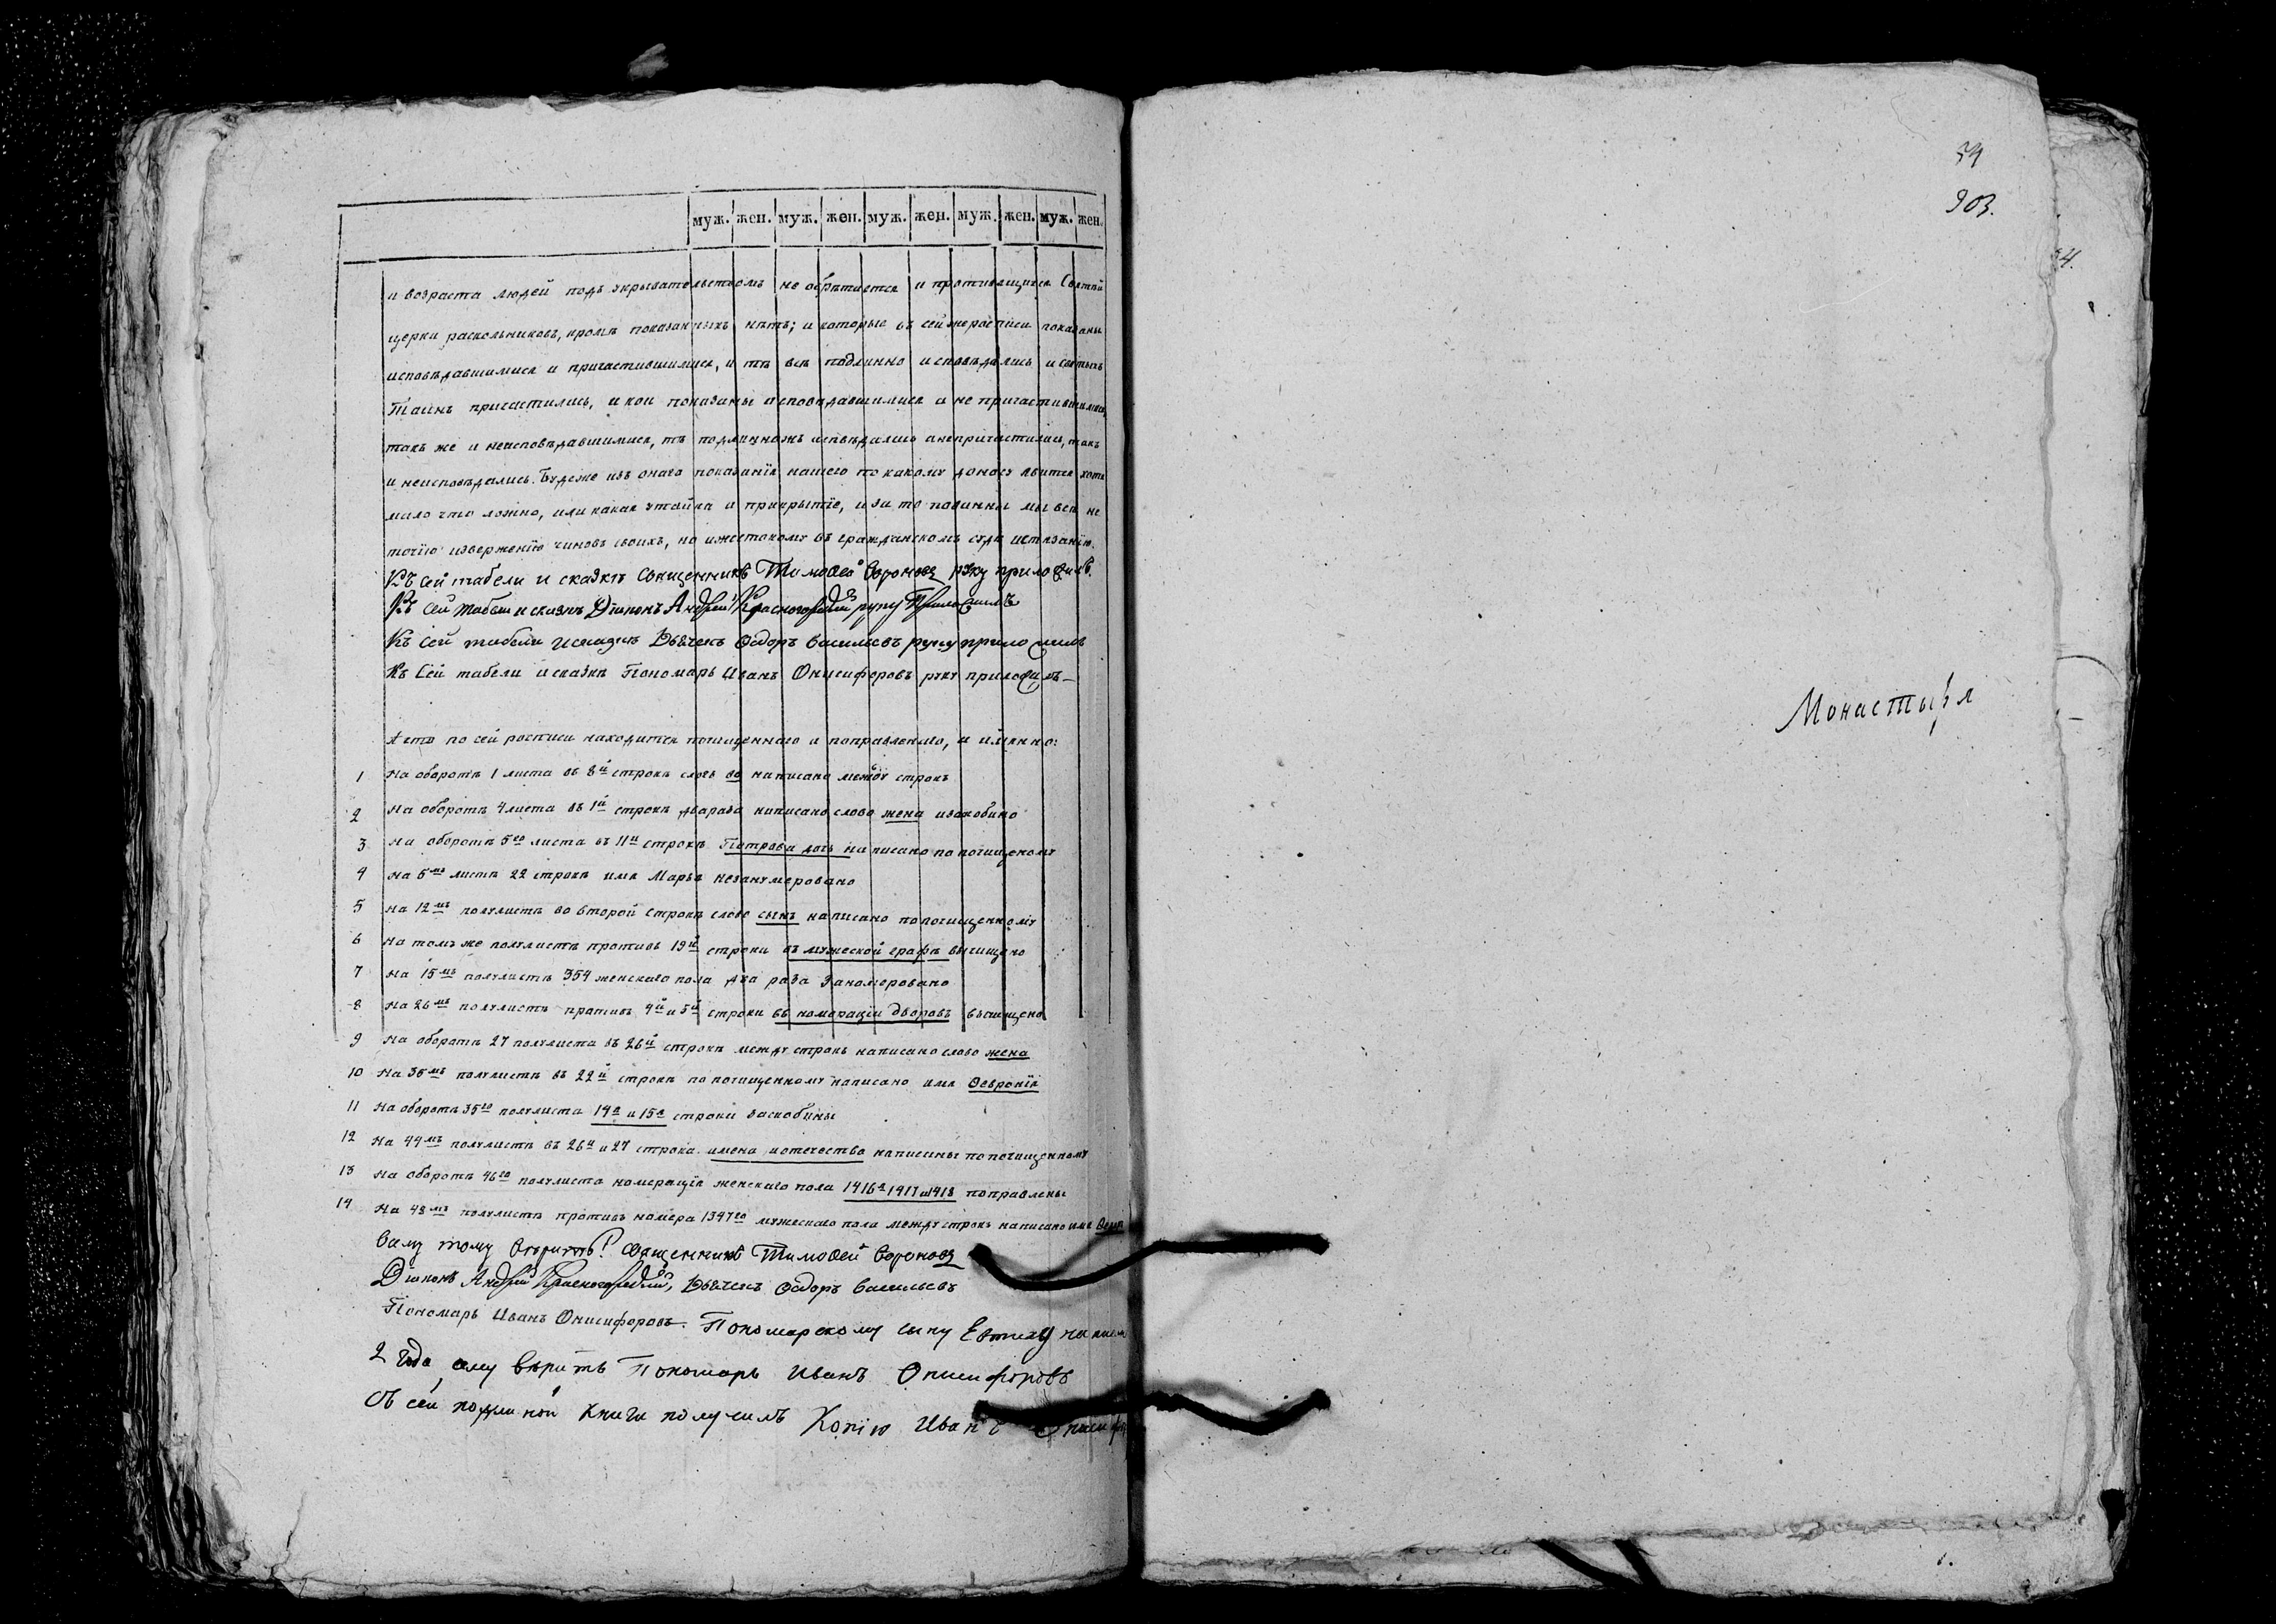 муж. жен. муж. жен. муж. жен. муж. жен. муж. жен.
и возраста людей подъ укрывательствомъ не обрѣтается и противящихся Святѣй
церкви раскольниковъ, кромѣ показанныхъ нѣтъ; и которые въ сей же росписи показаны
исповѣдавшимися и причастившимися, и тѣ всѣ подлинно исповѣдались и святыхъ
Таинъ причастились, и кои показаны исповѣдавшимися а не причастившимися,
такъ же и неисповѣдавшимися, тѣ подлинножъ исповѣдались анепричастились, такъ
и неисповѣдались. Будеже изъ онаго показанія нашего по какому доносу явится хотя
мало что ложно, или какая утайка и прикрытіе, и за то повинны мы всѣ не
точію изверженію чиновъ своихъ, но ижестокому въ гражданскомъ судѣ истязанію.
Къ сей табели и сказкѣ священникъ Тимоѳей Вороновъ руку приложилъ.
Къ сей табели и сказкѣ Діаконъ Андрей Красногорскій руку Приложилъ
Къ сей табели исказкѣ Дьячекъ Ѳедоръ Васильевъ руку приложилъ
Къ Сей табели исказкѣ Пономарь Иванъ Онисифоровъ руку приложилъ
А что по сей росписи находится почищеннаго и поправленаго, и именно:
1 На оборотѣ 1 листа въ 8й строкѣ слогъ во написано между строкъ
2 На оборотѣ 4 листа въ 1й строкѣ двараза написано слово жена изскобино
3 На оборотѣ 5го листа въ 11й строкѣ Петрова дочь написано по почищеному
4 На 6мъ листѣ 22 строкѣ имя Марья незанумеровано
5 На 12мъ полулистѣ во второй строкѣ слово сынъ написано попочищенному
6 На томъ же полулистѣ противъ 19й строки въ мужеской графѣ вычищено
7 На 15мъ полулистѣ 354 женскаго пола два раза Заномеровано
8 На 26мъ полулистѣ противъ 4й и 5й строки въ номераціи дворовъ вычищено
9 На оборотѣ 27 полулиста въ 26й строкѣ между строкъ написано слово жена
10 На 35мъ полулистѣ въ 22й строкѣ по почищенному написано имя Ѳевронія
11 На оборотѣ 35го полулиста 14я и 15я строки заскобины
12 На 44мъ полулистѣ въ 26й и 27 строкахъ имена иотечества написаны попочищенному
13 На оборотѣ 46го полулиста номерація женскаго пола 1416я 1417 и 1418 поправлены
14 На 48мъ полулистѣ противъ номера 1347го мужескаго пола между строкъ написано имя
Всему тому вѣрить. Священникъ Тимоѳей Вороновъ
Діаконъ Андрей Красногорскій, Дьячекъ Ѳедоръ Васильевъ
Пономарь Иванъ Онисифоровъ. Пономарскому сыну Евтихѣю
2 года, ему вѣрить Пономарь Иванъ Онисифоровъ
Съ сей подлиной книги получилъ Копію Иванъ
54
903.
34.
Монастыря